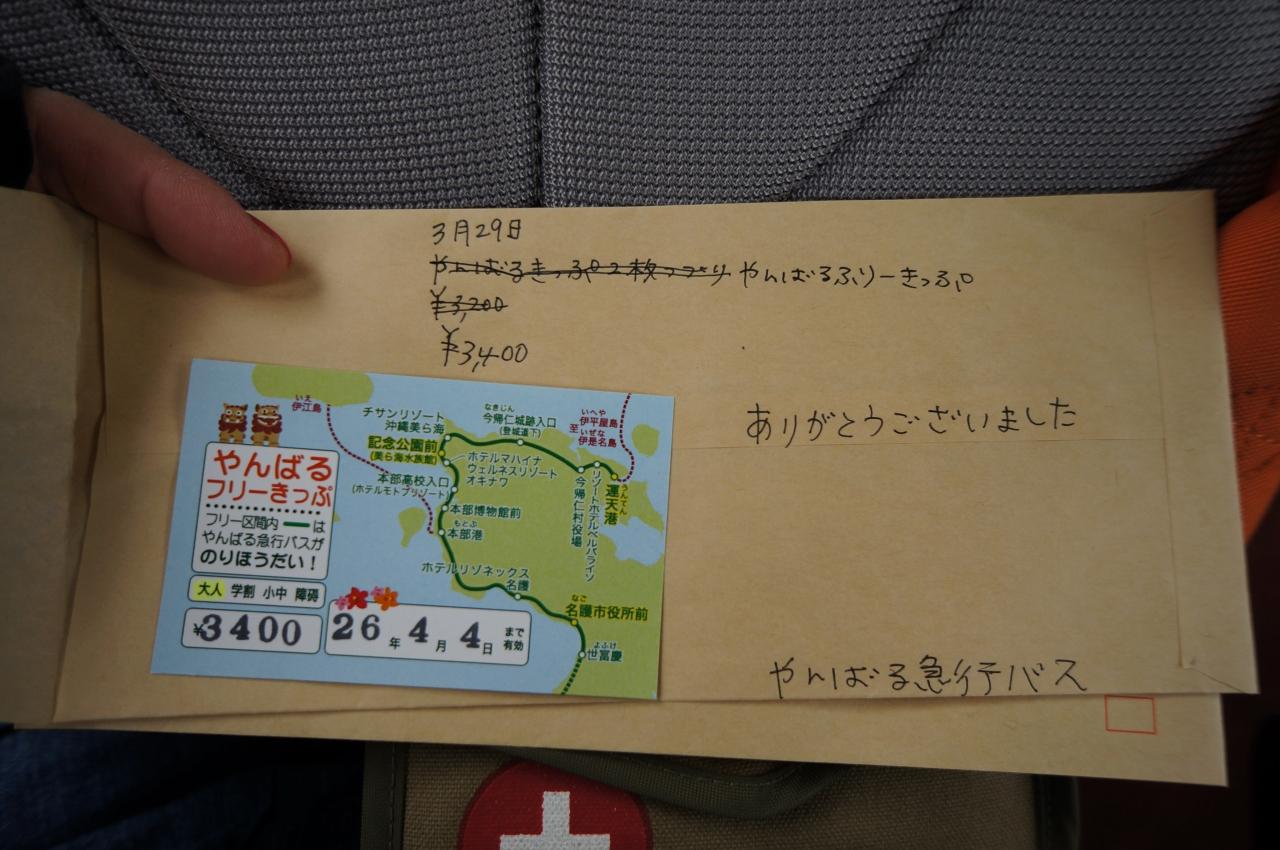 3月29日
やんばるきっぷ2枚つづり やんばるふりーきっぷ
¥3,200
¥3,400
ありがとうございました
やんばる急行バス
やんばる
フリーきっぷ
フリー区間内 は
やんばる急行バスが
のりほうだい!
大人 学割 小中 障碍
¥3400
26年4月4日まで有効
いえ
伊江島
チサンリゾート
沖縄美ら海
記念公園前
(美ら海水族館)
なきじん
今帰仁城跡入口
(登城道下)
いへや
至伊平屋島
いぜな
伊是名島
ホテルマハイナ
ウェルネスリゾート
オキナワ
本部高校入口
(ホテルモトブリゾート)
本部博物館前
もとぶ
本部港
今帰仁村役場
リゾートホテルベルパライソ
うんてん
運天港
ホテルリゾネックス
名護
なご
名護市役所前
よふけ
世冨慶